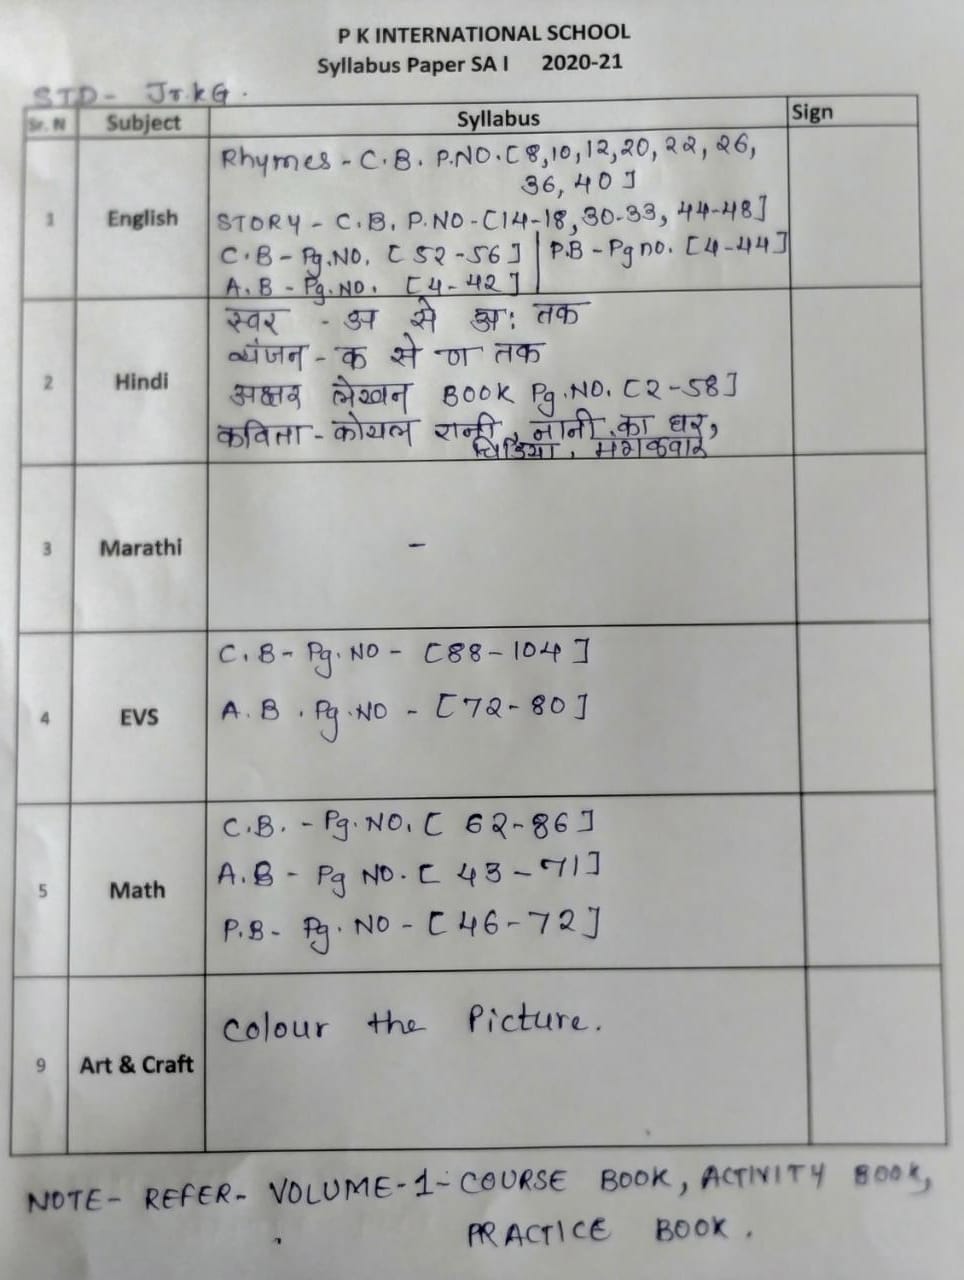 P K INTERNATIONAL SCHOOL
Syllabus Paper SA I 2020-21
STD- Jr.kG.
Sr. N Subject Syllabus Sign
1 English
Rhymes - C.B. P.NO.[8,10,12,20,22,26,
36,40]
STORY - C.B. P.NO-[14-18,30-33,44-48]
C.B- Pg.NO. [52-56] | P.B - Pg no. [4-44]
A.B - Pg.NO. [4-42]
2 Hindi
स्वर - अ से अः तक
व्यंजन - क से ण तक
अक्षर लेखन BOOK Pg.NO. [2-58]
कविता - कोयल रानी, नानी का घर,
चिडिया,
3 Marathi -
4 EVS
C.B- Pg.NO - [88-104]
A.B. Pg.NO - [72-80]
5 Math
C.B. - Pg.NO. [62-86]
A.B - Pg NO. [43-71]
P.B- Pg.NO - [46-72]
9 Art & Craft
Colour the Picture.
NOTE- REFER- VOLUME-1- COURSE BOOK, ACTIVITY BOOK,
PRACTICE BOOK.